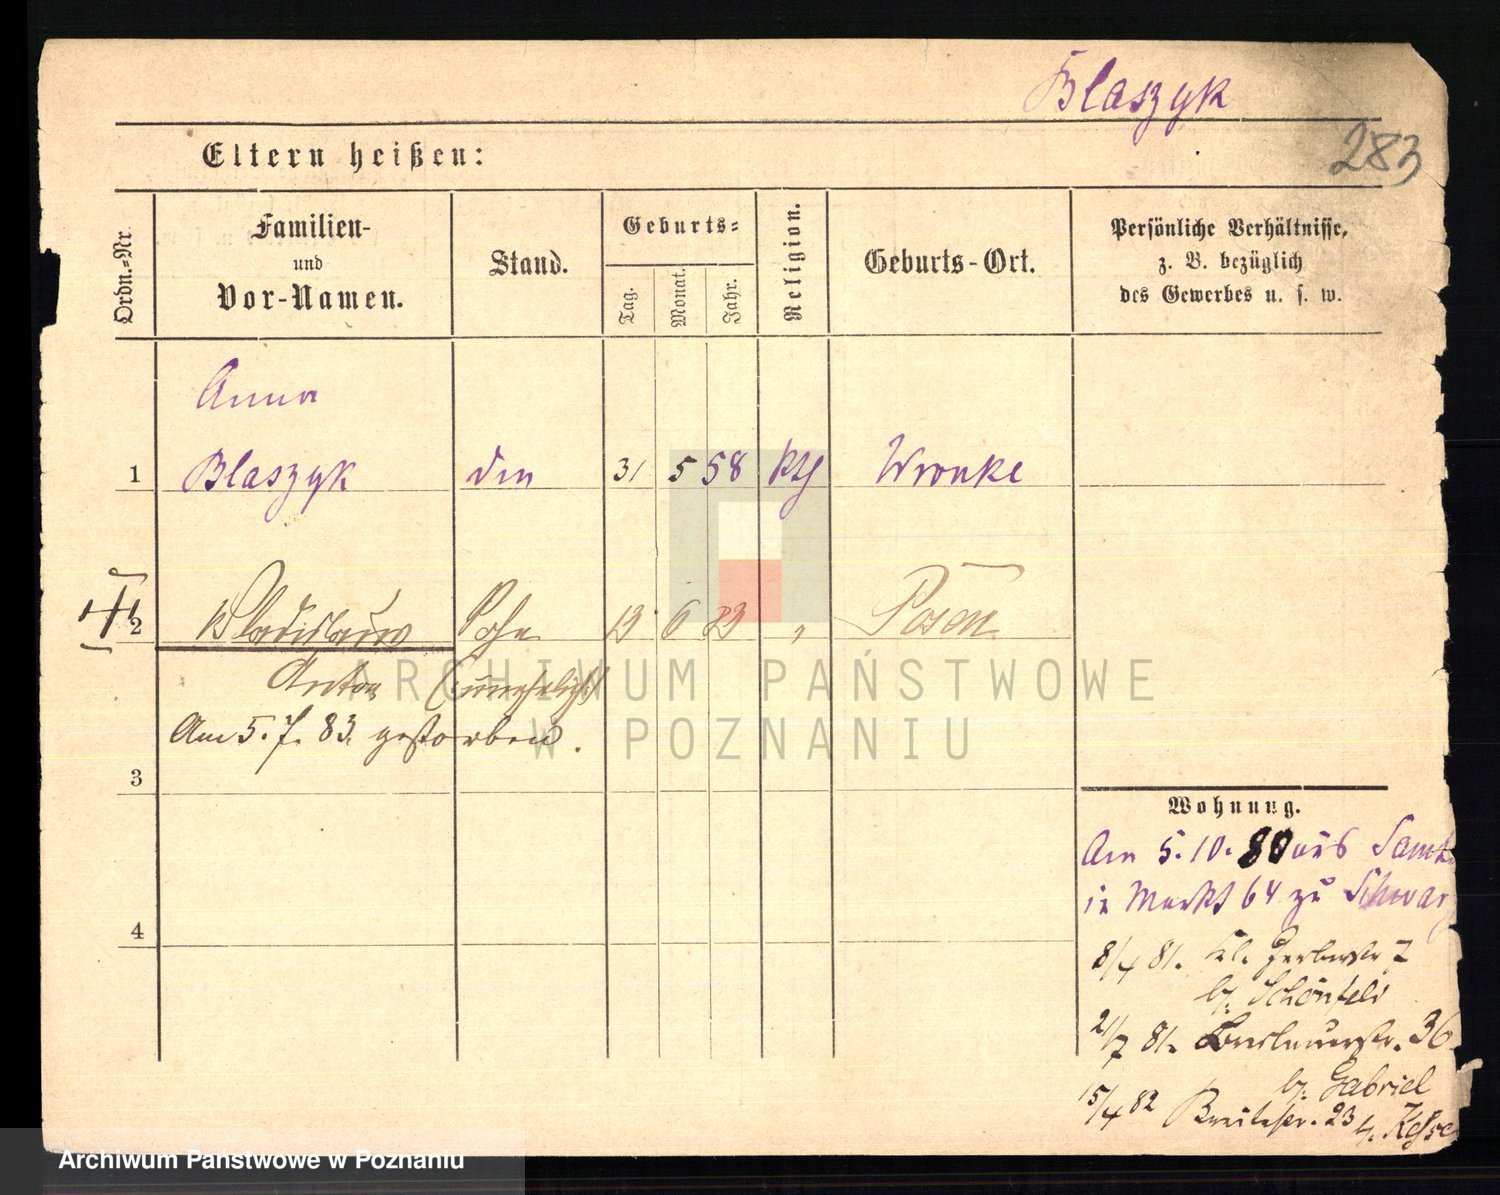 Blaszyk
283
Eltern heißen:
Ordn.-Nr.
Familien-
und
Vor-Namen.
Stand.
Geburts-
Tag.
Monat.
Jahr.
Religion.
Geburts-Ort.
Persönliche Verhältnisse,
z. B. bezüglich
des Gewerbes u. s. w.
Anna
1 Blaszyk 31 5 58 kth Wronke
2 Wladislaus Sohn 6 " Posen
Anton (unehelich)
Am 5. 7. 83. gestorben.
3
4
Wohnung.
Am 5. 10. 80 aus Samt
in Markt 64 zu Schwar
8/4 81. Kl. Gerberstr 7
b. Schönfeld
21/7 81. Breslauerstr. 36
b. Gabriel
15/4 82 Breitestr. 23 b.
ARCHIWUM PAŃSTWOWE
W POZNANIU
Archiwum Państwowe w Poznaniu